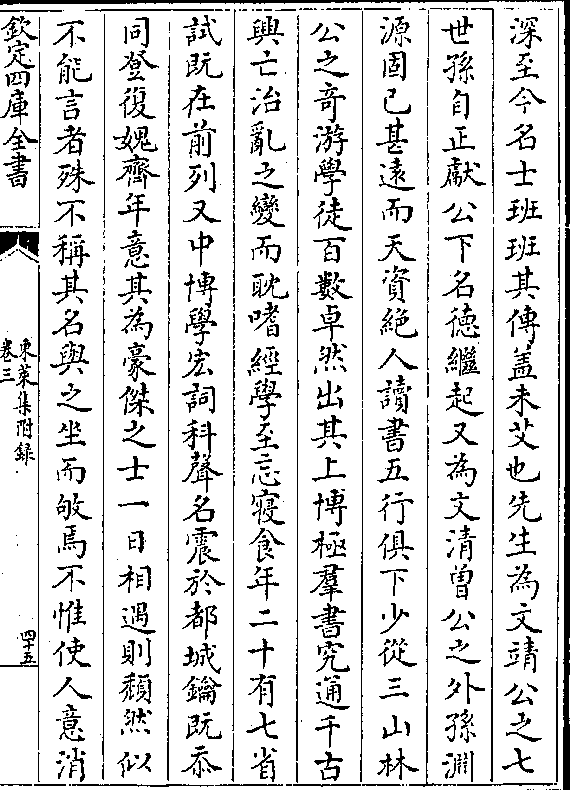 深至今名士班班其傳蓋未艾也先生為文靖公之七
世孫自正獻公下名德繼起又為文清曾公之外孫淵
源固已甚逺而天資絶人讀書五行俱下少從三山林
公之竒游學徒百數卓然出其上博極羣書究通千古
興亡治亂之變而耽嗜經學至忘寢食年二十有七省
試既在前列又中博學宏詞科聲名震於都城鑰既忝
同登復媿齊年意其為豪傑之士一日相遇則頽然似
不能言者殊不稱其名與之坐而敬焉不惟使人意消
欽定四庫全書
東萊集附錄
卷三
四十五